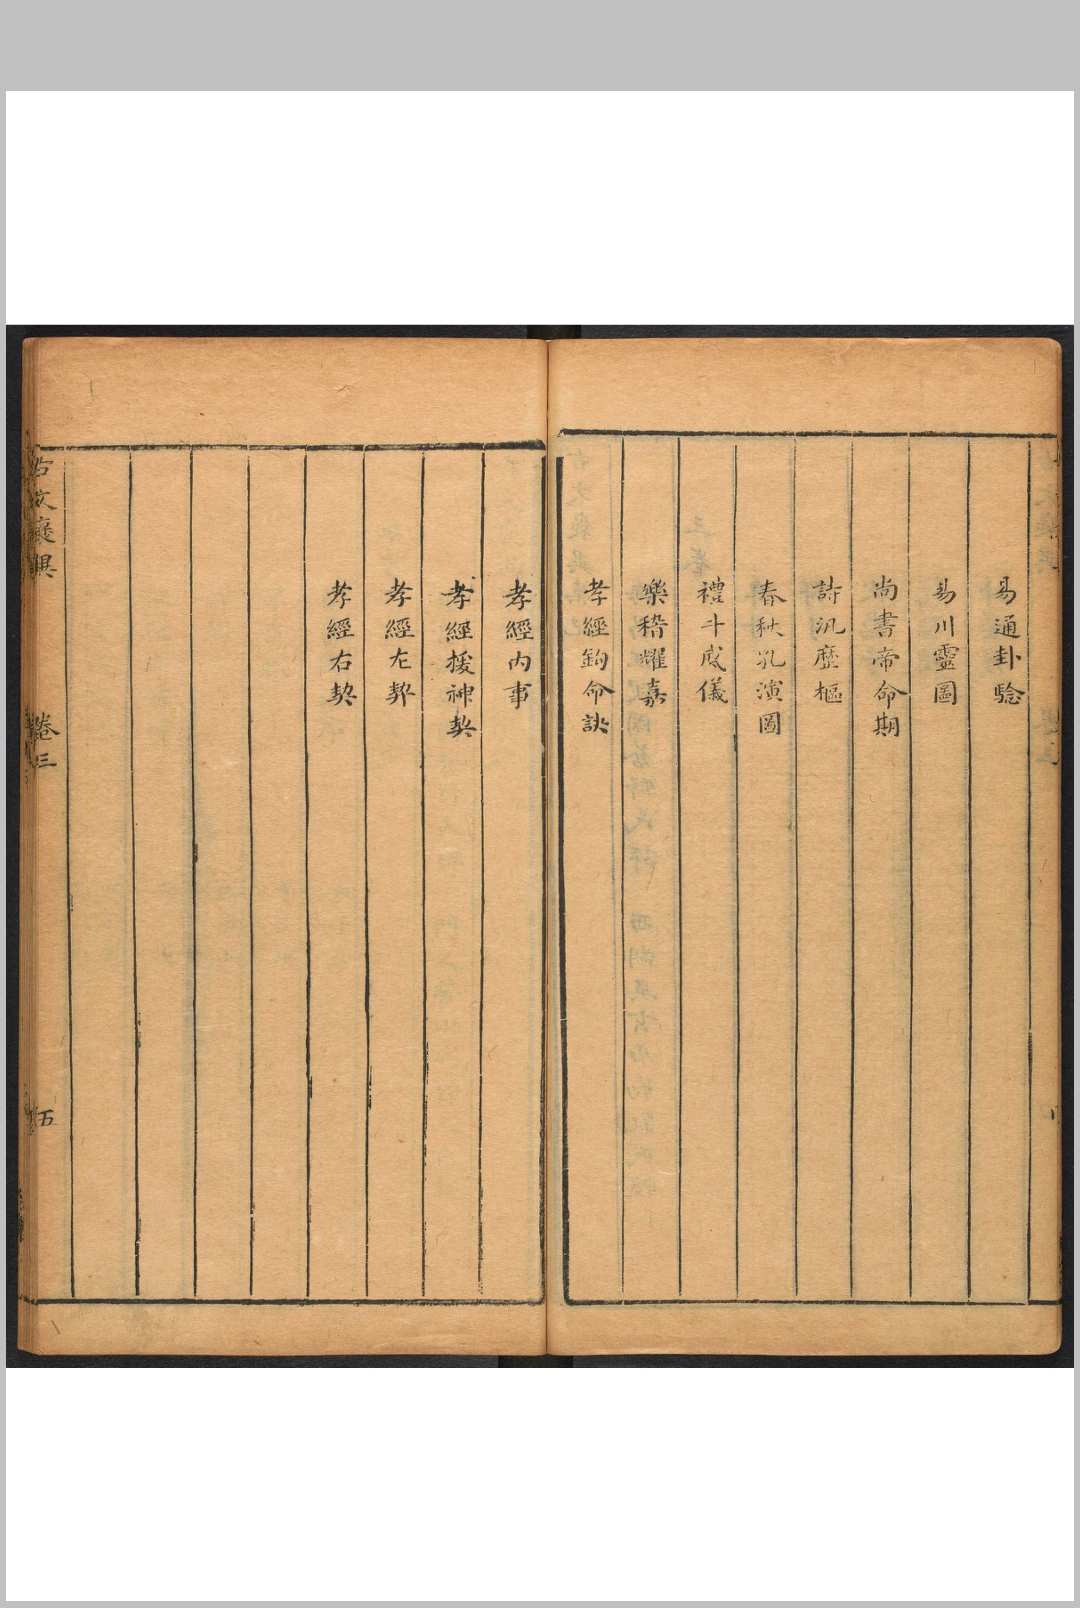 易通卦驗
易川靈圖
尚書帝命期
詩汎歷樞
春秋孔演圖
禮斗威儀
樂稽耀嘉
孝經鉤命訣
孝經內事
孝經援神契
孝經左契
孝經右契
古文褒異
卷三
五